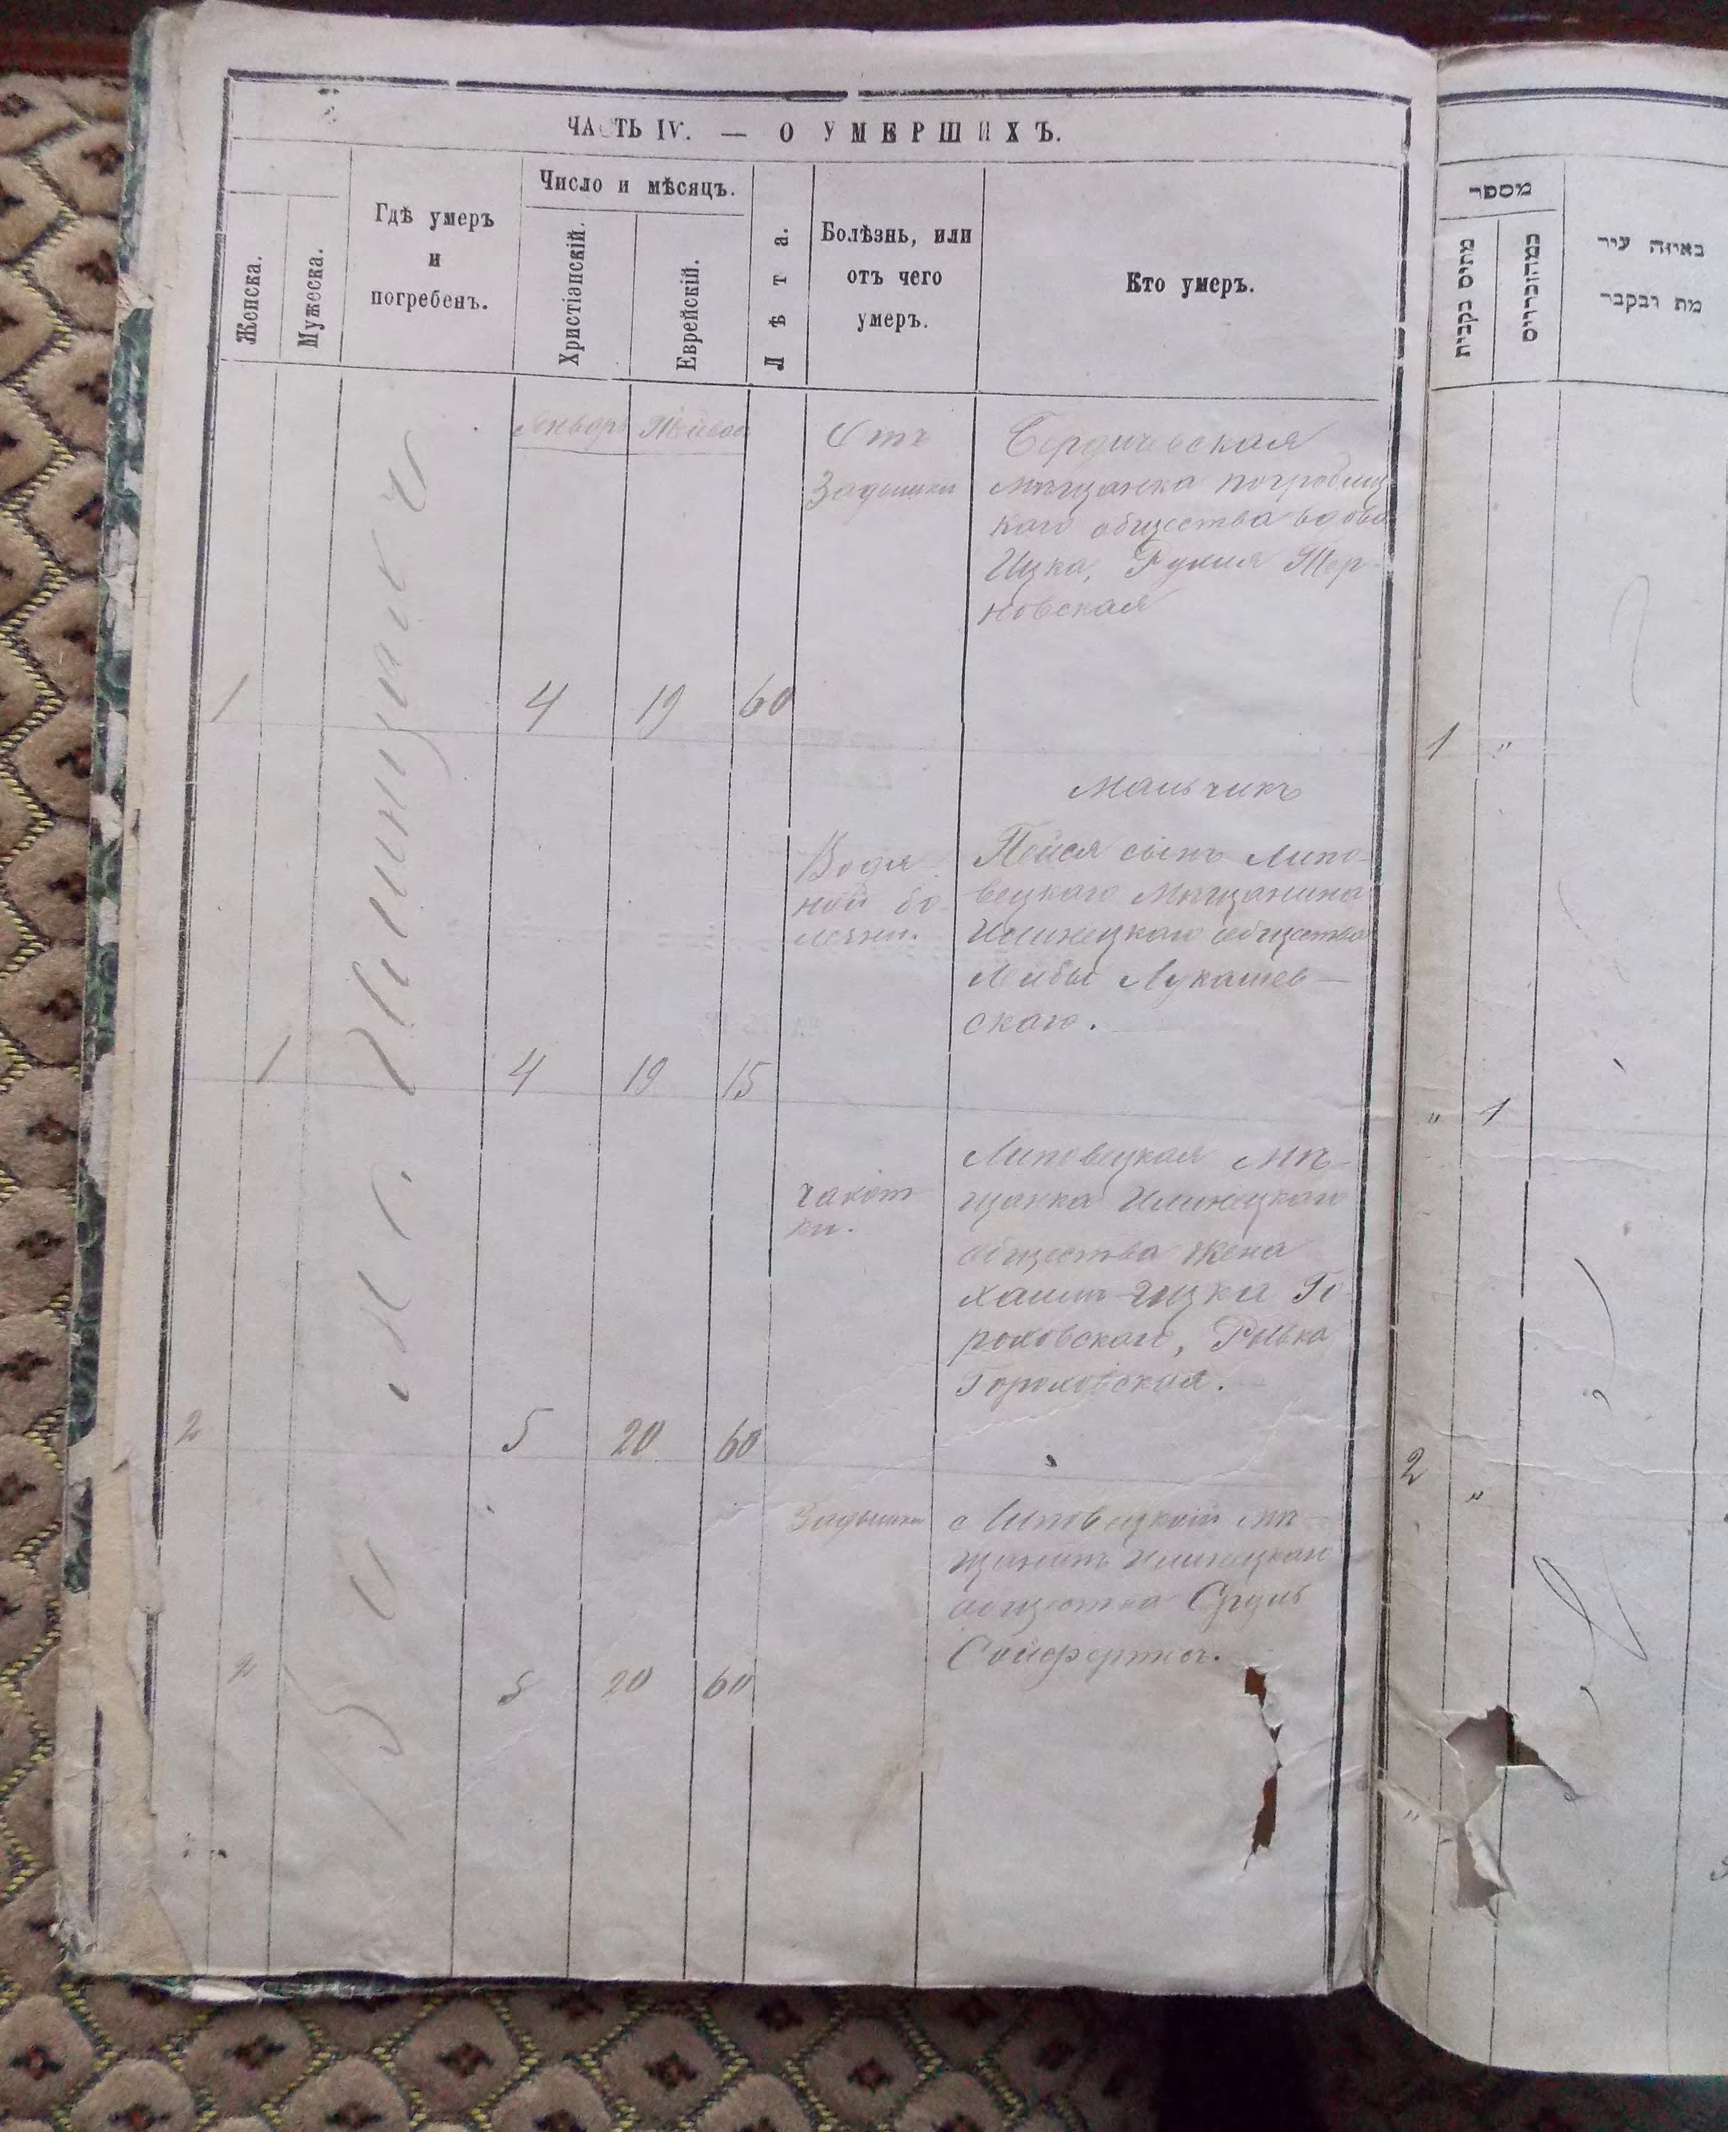 ЧАСТЬ IV. — О УМЕРШИХЪ.
Женска.
Мужеска.
Гдѣ умеръ
и
погребенъ.
Число и мѣсяцъ.
Христіанскій.
Еврейскій.
Лѣта.
Болѣзнь, или
отъ чего
умеръ.
Кто умеръ.
в м. Илинцахъ
Январь
Тейвес
Отъ
Задышки
Бердичевская
мѣщанка погребищ
каго общества вдова
Ицка, Рухля Тор-
новская
1
4
19
60
Мальчикъ
Водя
ной бо-
лезни.
Пейся сынъ Липо-
вецкаго Мѣщанина
Илинецкаго общества
Лейбы Лукашев-
скаго.
1
4
19
15
чахот
ки.
Липовецкая мѣ-
щанка Илинецкаго
общества жена
Хаимъ-Ицка Го
роховскаго, Рывка
Гороховская.
2
5
20
60
Задышки
Липовецкій мѣ-
щанинъ Илинецкаго
общества Сруль
Сойферъ
2
5
20
60
מספר
מתים נקבות
במהזכרים
באיזה עיר
מת ונקבר
1 "
" 1
2 "
"